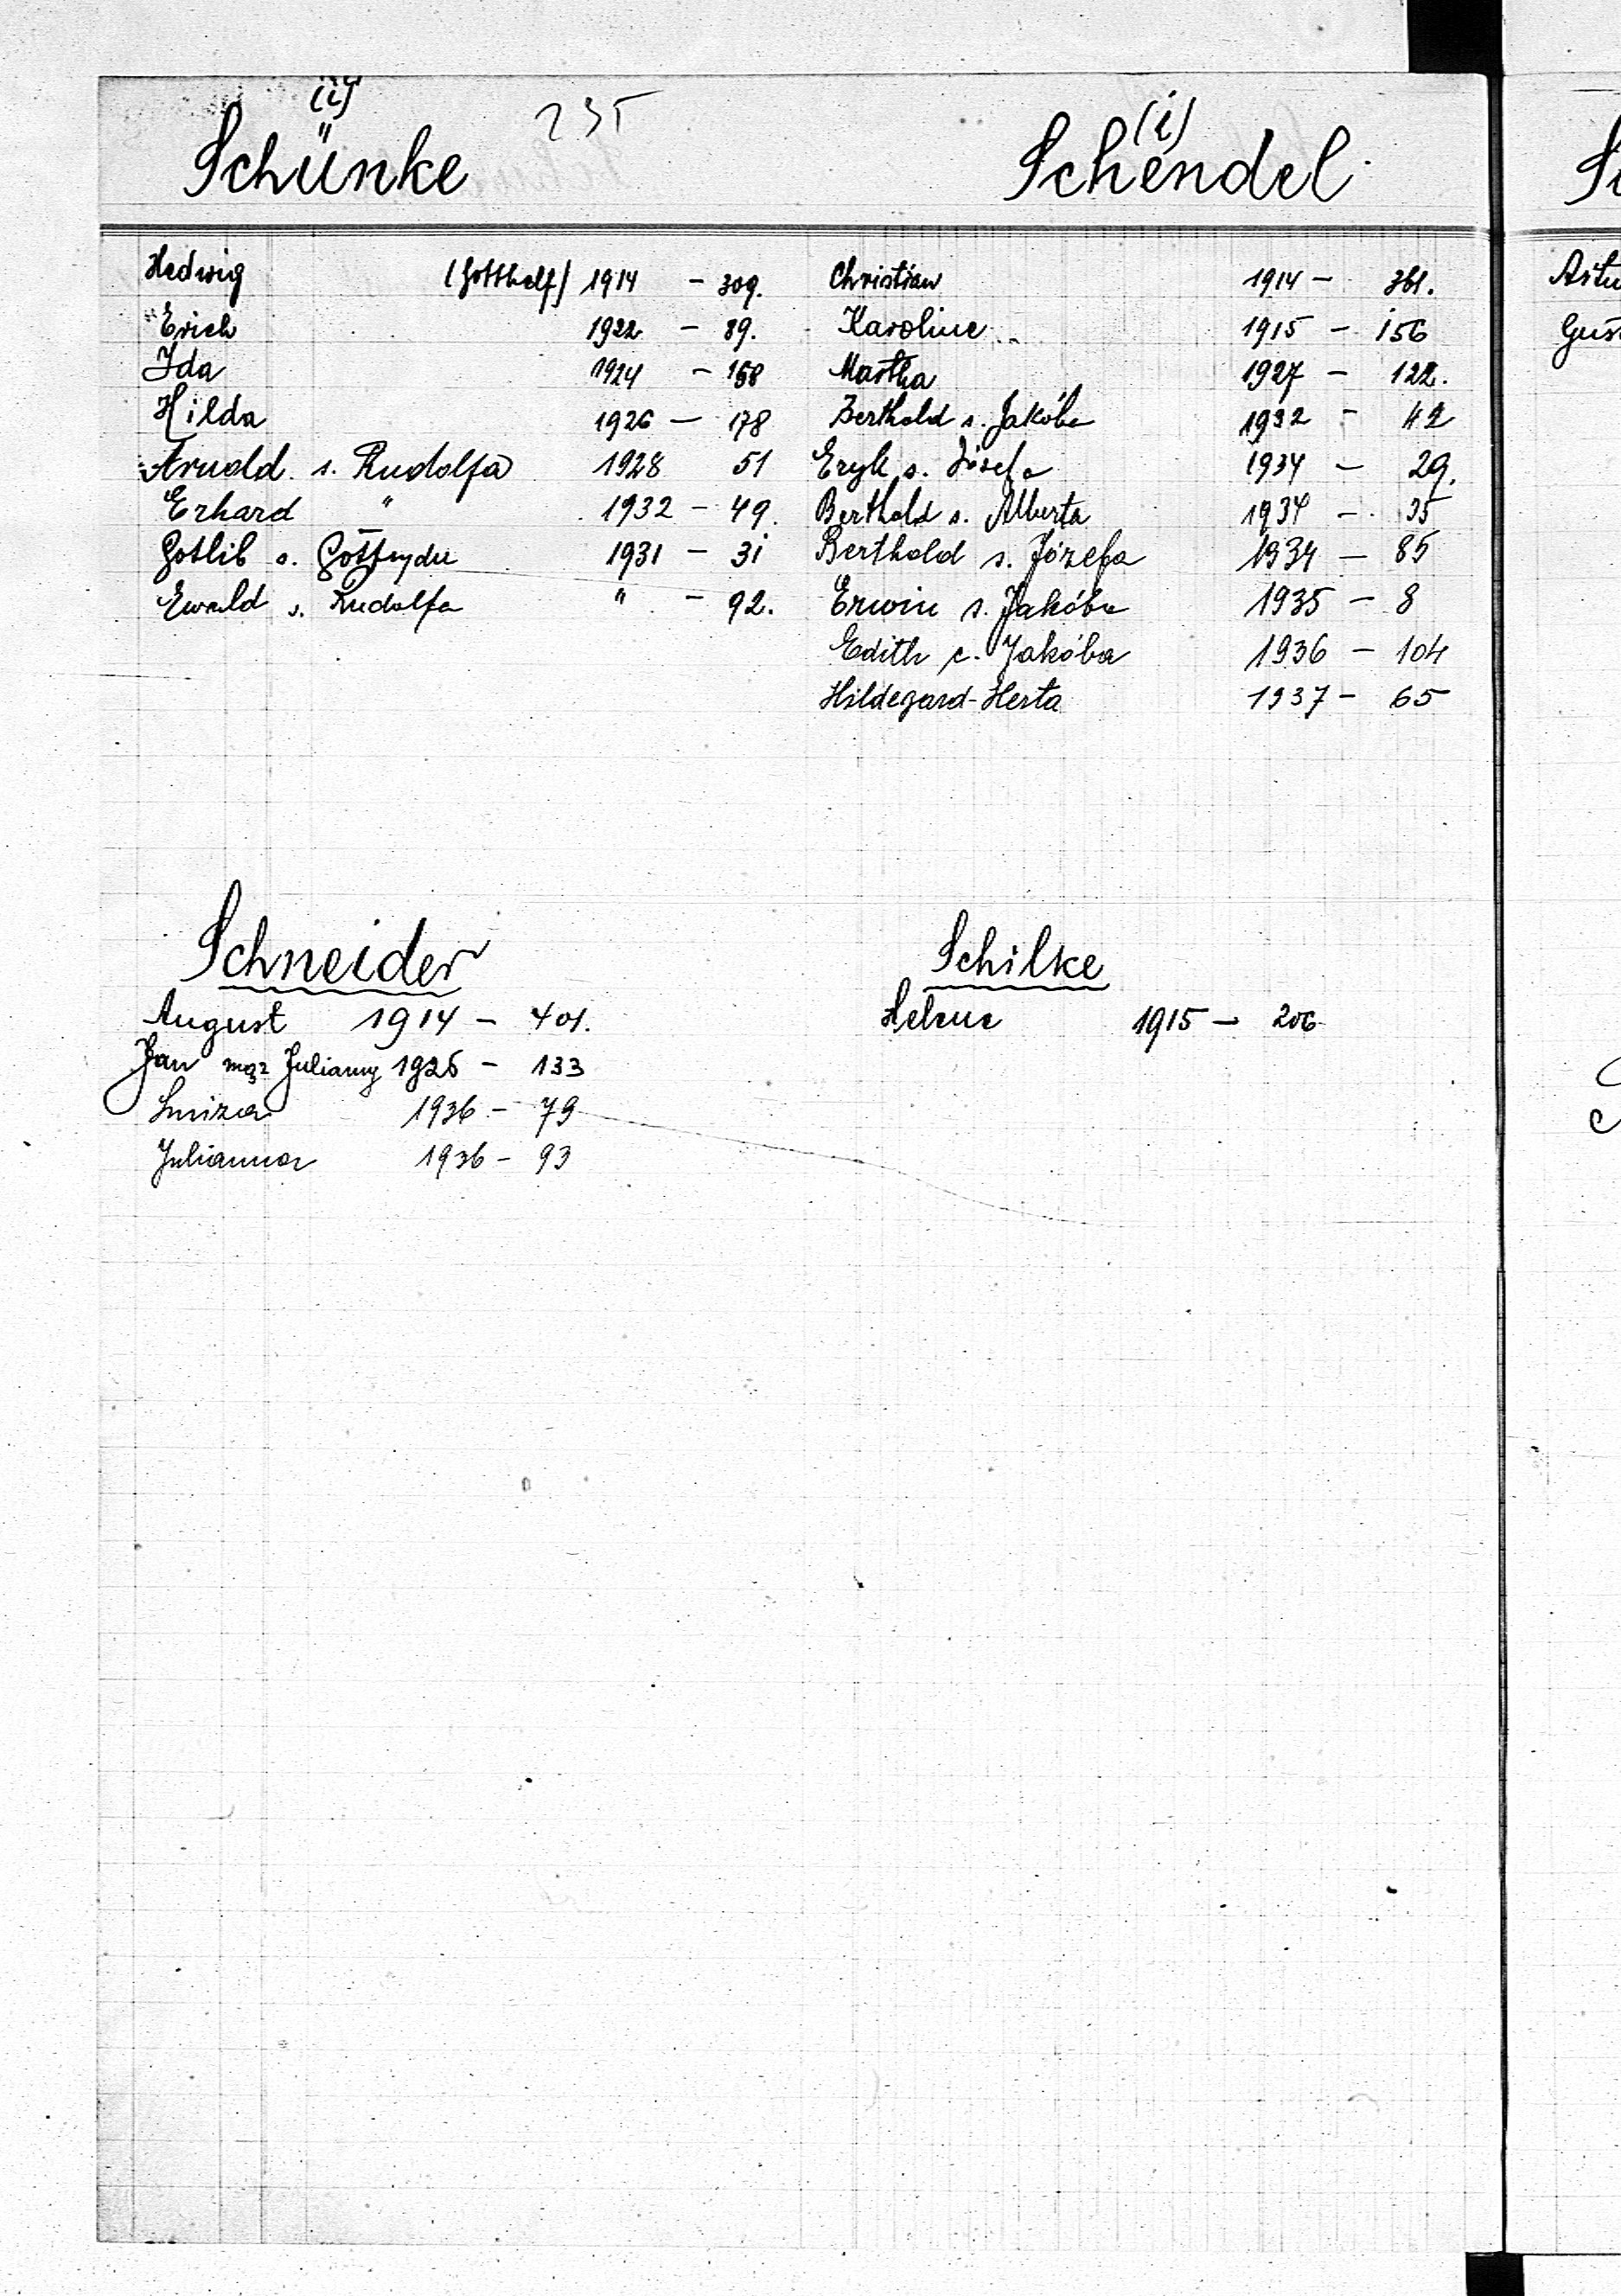 (i)
235
Schünke
Hedwig (Gotthelf) 1914 - 309.
Erich 1922 - 89.
Ida 1924 - 158
Hilda 1926 - 178
Arnold s. Rudolfa 1928 51
Erhard " 1932 - 49.
Gotlib s. 1931 - 31
Ewald s. Rudolfa " - 92.
(i)
Schendel
Christian 1914 - 361.
Karoline 1915 - 156
Martha 1927 - 122.
Berthold s. Jakóba 1932 - 42
Eryk s. Józefa 1934 - 29.
Berthold s. Alberta 1934 - 35
Berthold s. Józefa 1934 - 85
Erwin s. Jakóba 1935 - 8
Edith c. Jakóba 1936 - 104
Hildegard-Herta 1937 - 65
Schneider
August 1914 - 401.
Jan mąż Julianny 1926 - 133
Luiza 1936 - 79
Julianna 1936 - 93
Schilke
Helene 1915 - 206